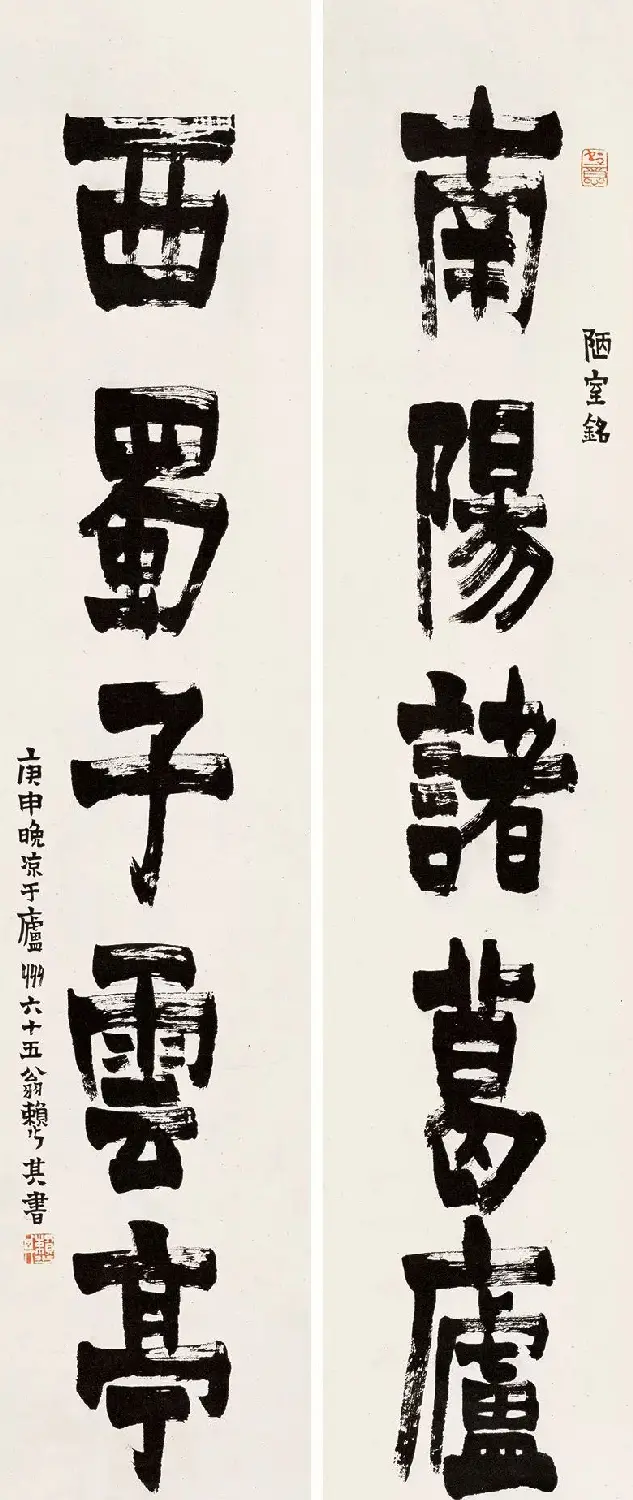 陋室銘
南陽諸葛廬
西蜀子雲亭
庚申晚凉于廬州六十五翁賴少其書